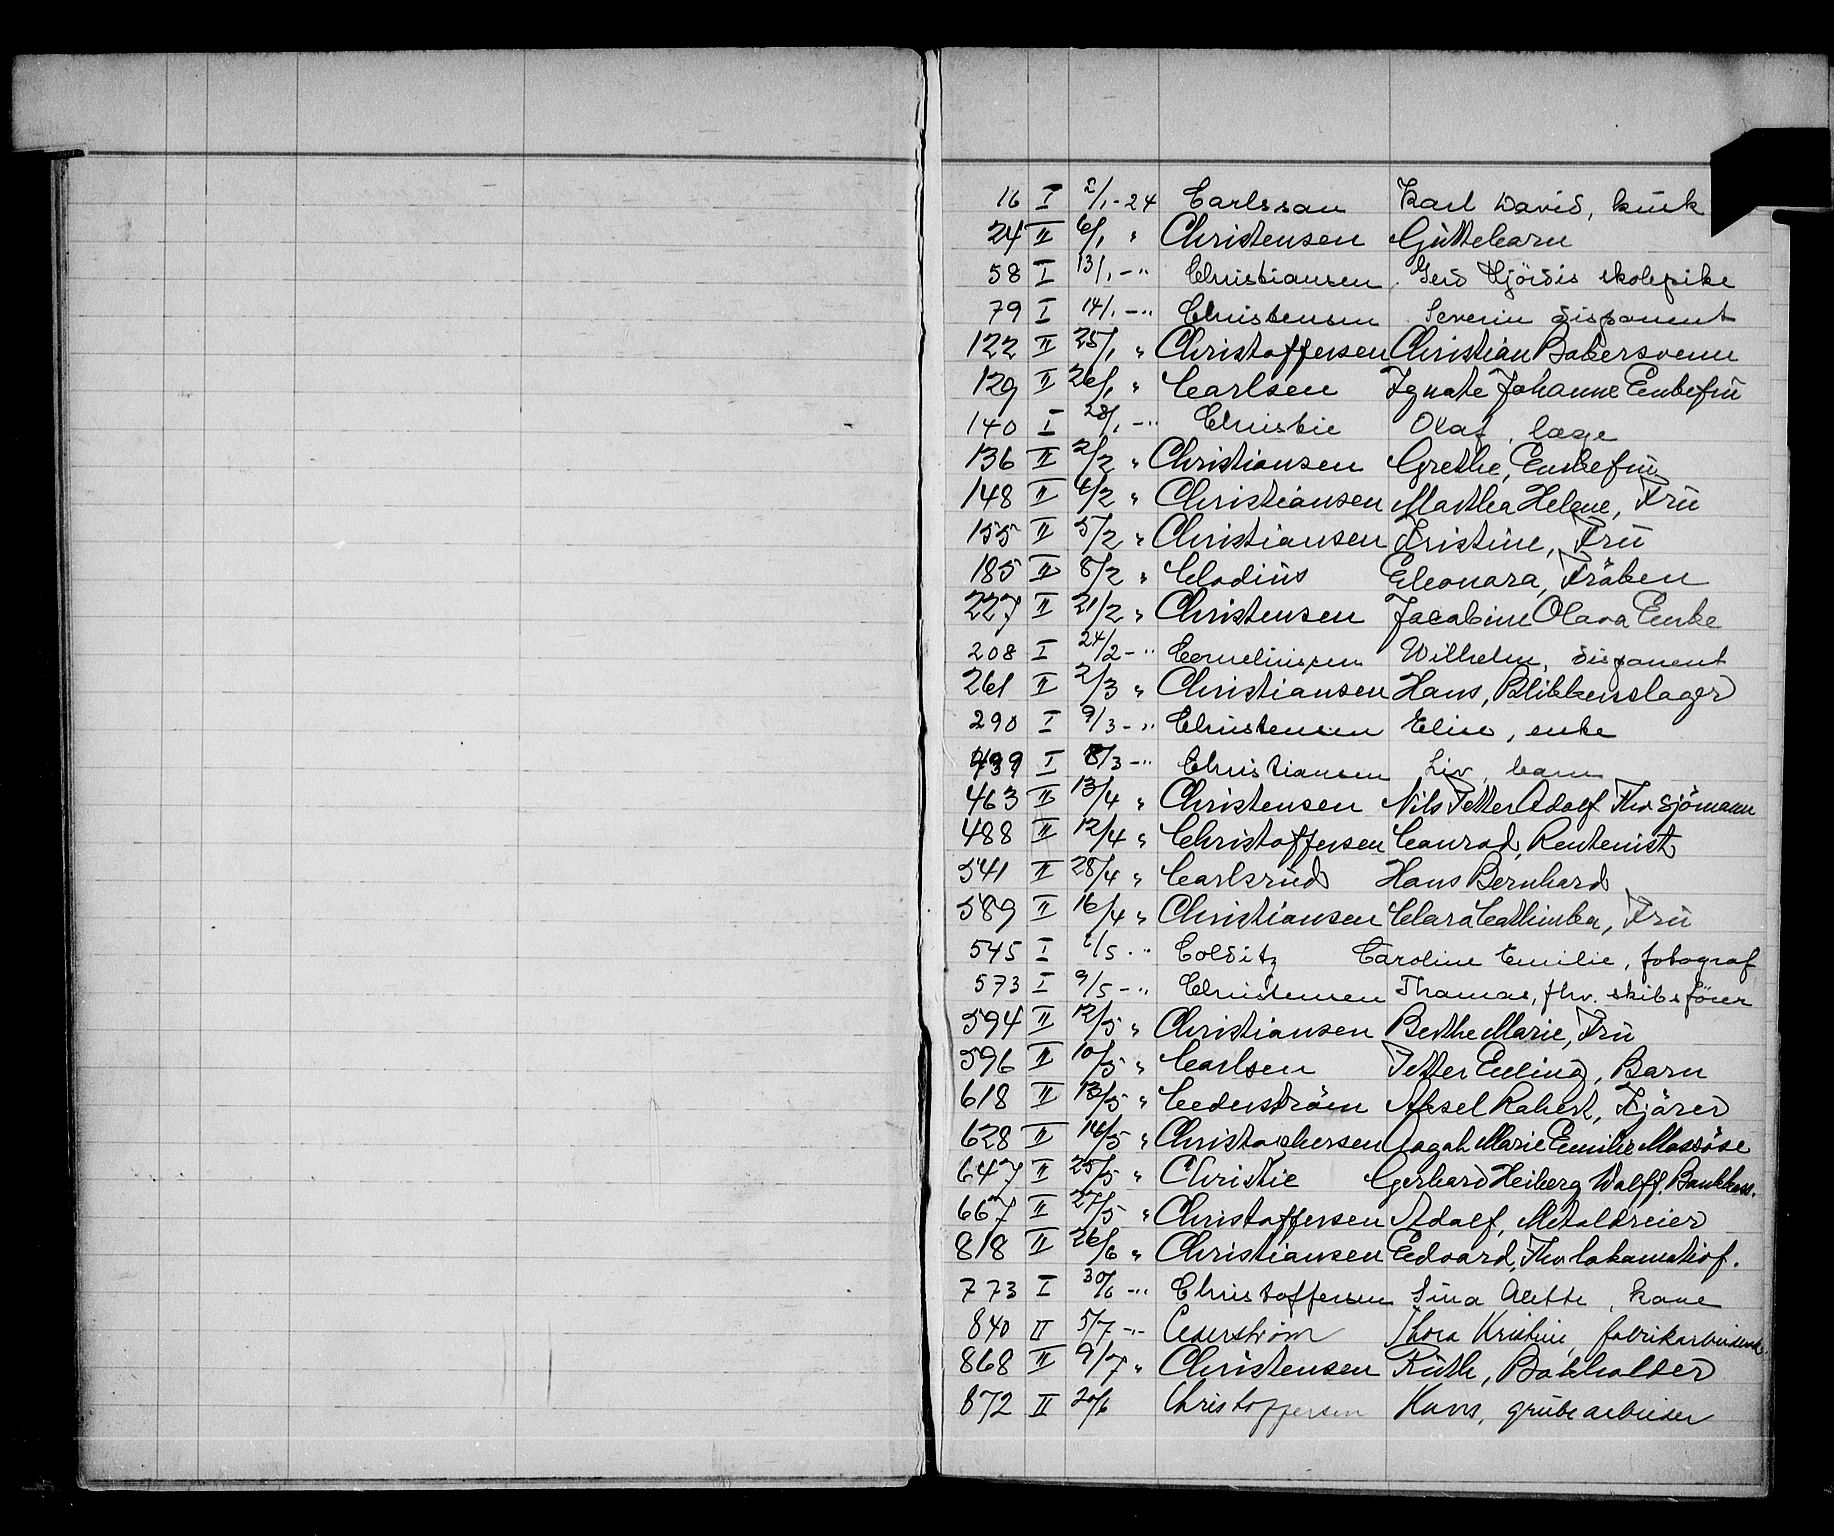 16 I 2/1 - 24 Carlsson Karl David, kusk
24 II 6/1 " Christensen Guttebarn
58 I 13/1 - " Christiansen Gerd Hjördis skolepike
79 I 14/1 - " Christensen Severin disponent
122 II 25/1 " Christoffersen Christian Bakersvenn
129 II 26/1 " Carlsen Ignate Johanne Enkefru
140 I 28/1 - " Christie Olaf, læge
136 II 2/2 " Christiansen Grethe, Enkefru
148 II 4/2 " Christiansen Martha Helene, Fru
155 II 5/2 " Christiansen Kristine, Fru
185 II 8/2 " Clodius Eleonora, Fröken
227 II 21/2 " Christensen Jacobine Olava Enke
208 I 24/2 - " Corneliussen Wilhelm, disponent
261 II 2/3 " Christiansen Hans, Blikkenslager
290 I 9/3 - " Christensen Elise, enke
I 8/3 - " Christiansen Liv, barn
463 II 13/4 " Christensen Nils Petter Adolf Fhv Sjömann
488 II 12/4 " Christoffersen Conrad, Rentenist
541 II 28/4 " Carlsrud Hans Bernhard
589 II 16/4 " Christiansen Clara Cathinka, Fru
545 I /5 - " Colditz Caroline Emilie, fotograf
573 I 9/5 - " Christensen Thomas, fhv. skibsförer
594 II 12/5 " Christiansen Berthe Marie, Fru
596 II 10/5 " Carlsen Petter Erling, Barn
618 II 13/5 " Cederström Aksel Robert, Kjörer
628 II 14/5 " Christophersen Aagot Marie Emilie Massöse
647 II 25/5 " Christie Gerhard Heiberg Wolff. Bankkass.
667 II 27/5 " Christoffersen Adolf, Metaldreier
818 II 26/6 " Christiansen Edvard, Fhv. lokomotivf.
773 I 30/6 - " Christoffersen Sina Alette, kone
840 II 5/7 - " Cederstrøm Thora Kristine, fabrikarbeidersk.
868 II 9/7 " Christensen Ruth, Bokholder
872 II 20/6 Christoffersen Hans, grubearbeider